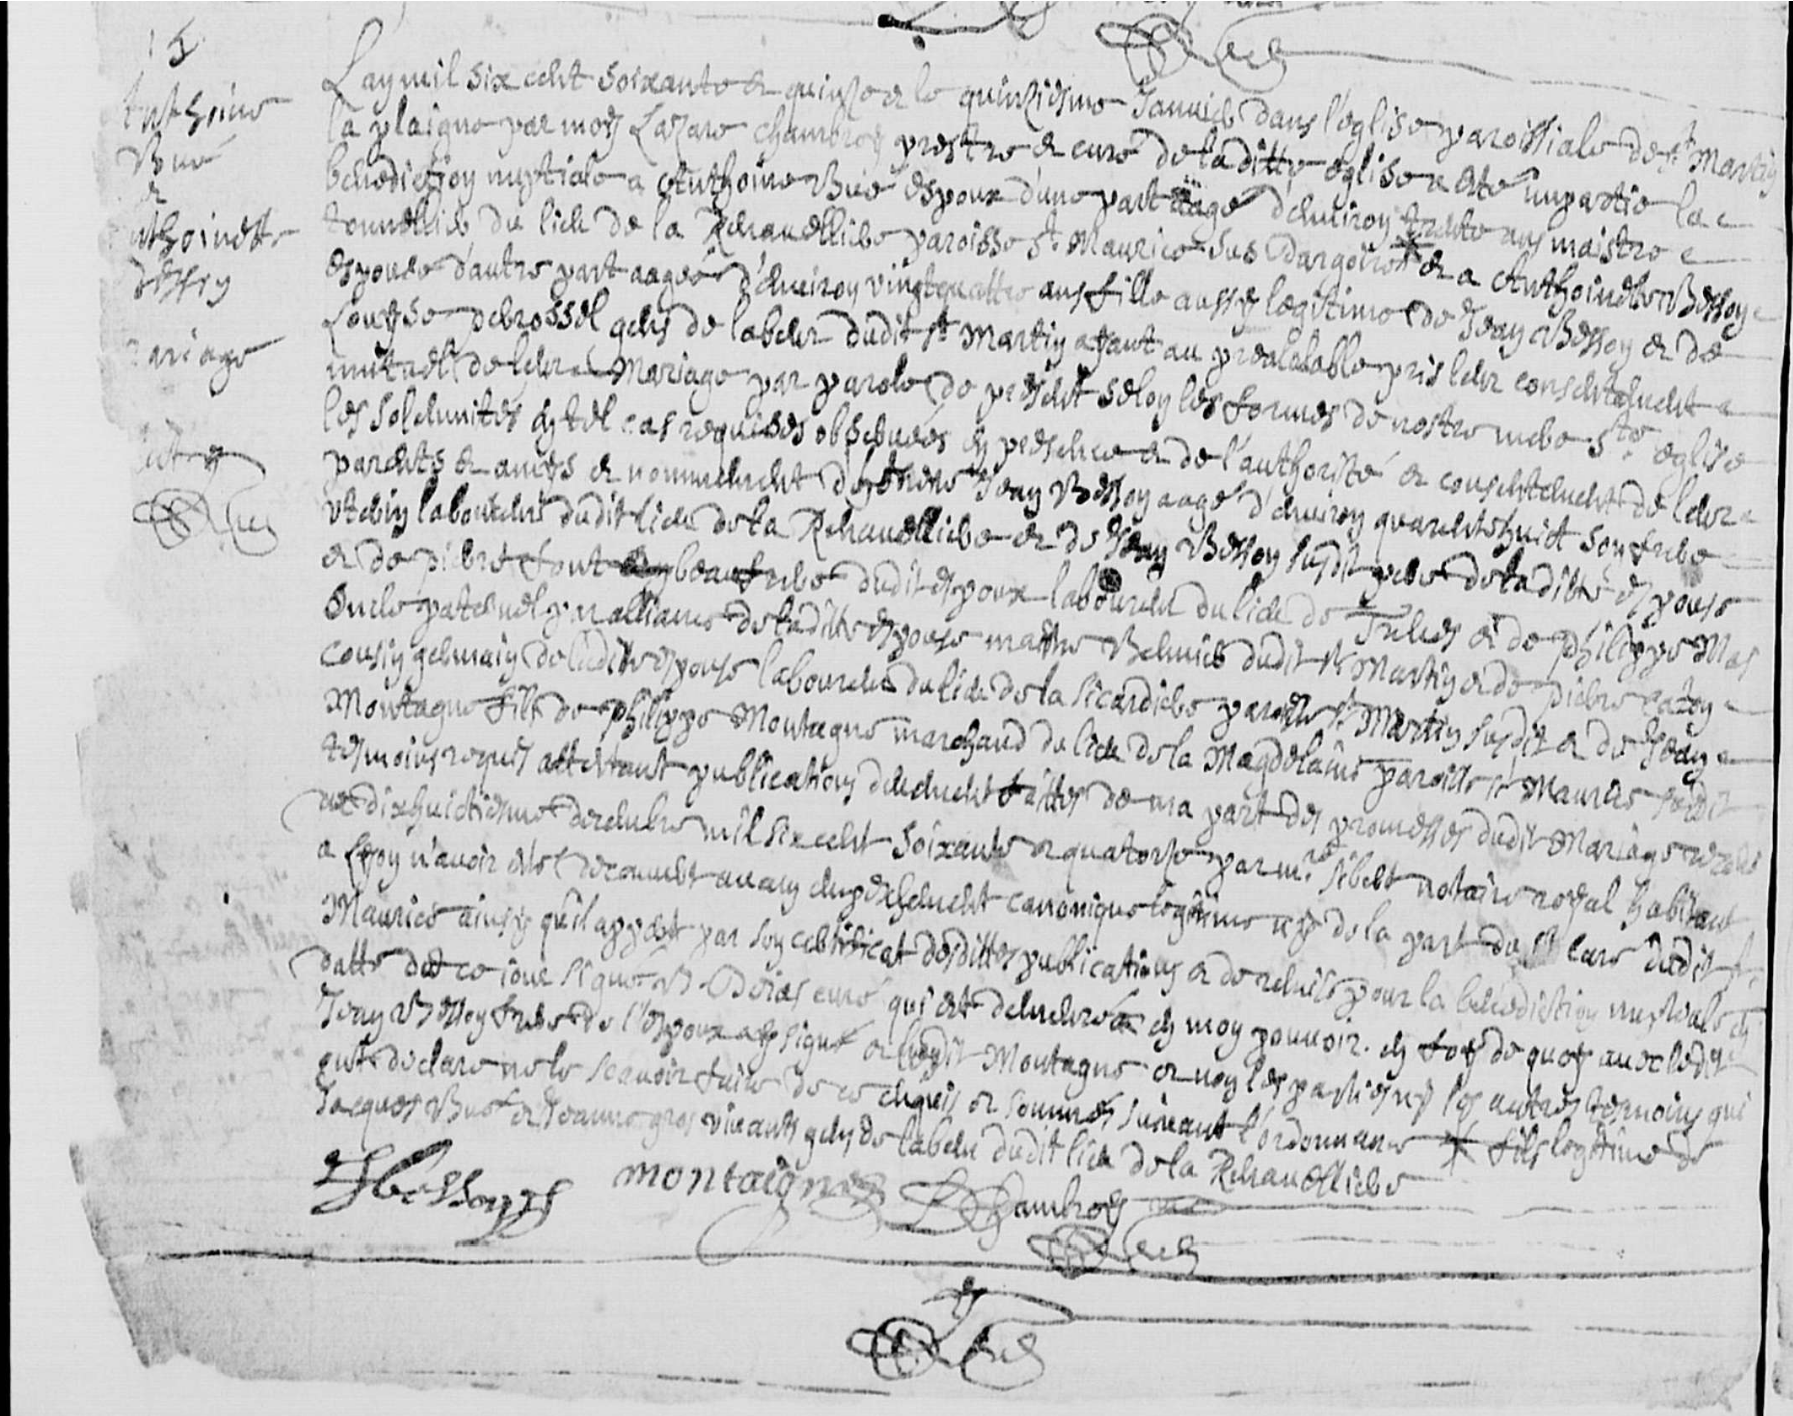 Anthoine
Bué
et
Anthoinette
Bessoy
mariage
L'an mil six cent soixante et quinze et le quinziesme Janvier dans l'eglise paroissiale de St Martin
la plaigne par moy Lazare Chambroy prestre et curé de laditte eglise a esté impartie la
benediction nuptiale a Anthoine Bué espoux d'une part aagé d'environ trente ans maistre
tonnellier du lieu de la paroisse St Maurice sus Dargoire et a Anthoinette Bessoy
espouse d'autre part aagée d'environ vingtquattre ans fille aussy legitime de Jean Bessoy et de
Louyse gens de labeur dudit St Martin ayant au prealalable pris leur consentement
mutuel de leur Mariage par parole de present selon les formes de nostre mere Ste eglise
les solemnites en tel cas requises observées en presence et de l'authorité et consentement de leur
parents et amys et nommement de Jean Bessoy aagé d'environ quarentehuict son frere
uterin laboureur dudit lieu de la et de Jean Bessoy susdit pere de laditte espouse
et de pierre beaufrere dudit espoux laboureur du lieu de et de Philippe Mas
oncle paternel par alliance de laditte espouse maistre dudit St Martin et de pierre
cousin germain de laditte espouse laboureur du lieu de la Sicardiere paroisse St Martin susdit et de Jean
Montagne fils de Philippe Montagne marchand du lieu de la Magdelaine paroisse St Maurice susdit
tesmoins requis attendant publications deuement faittes de ma part des promesses dudit Mariage
dixhuictiesme decembre mil six cent soixante et quatorze par me notaire royal habitant
a n'avoir esté decouvert aucun empeschement canonique legitime ny de la part du Sr curé dudit St
Maurice ainsy qu'il appert par son certificat desdittes publications et de remise pour la benediction nuptiale en
datte de ce jour signé curé qui est demeuré en mon pouvoir. en foy de quoy avec ledit
Jean Bessoy frere de l'espoux a signé et ledit Montagne et non les parties ny les autres tesmoins qui
ont declaré ne le scavoir faire de ce enquis et sommés suivant l'ordonnance * fils legitime de
Jacques Bué et Jeanne gros vivants gens de labeur dudit lieu de la
JBessoy montaigne Chambroy